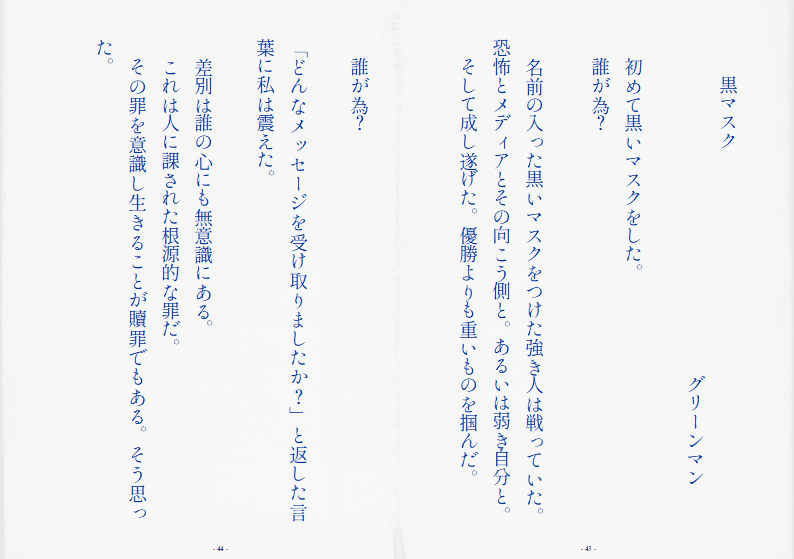 黒マスク
グリーンマン
初めて黒いマスクをした。
誰が為？
名前の入った黒いマスクをつけた強き人は戦っていた。
恐怖とメディアとその向こう側と。あるいは弱き自分と。
そして成し遂げた。優勝よりも重いものを掴んだ。
- 43 -
誰が為？
「どんなメッセージを受け取りましたか？」と返した言
葉に私は震えた。
差別は誰の心にも無意識にある。
これは人に課された根源的な罪だ。
その罪を意識し生きることが贖罪でもある。そう思っ
た。
- 44 -